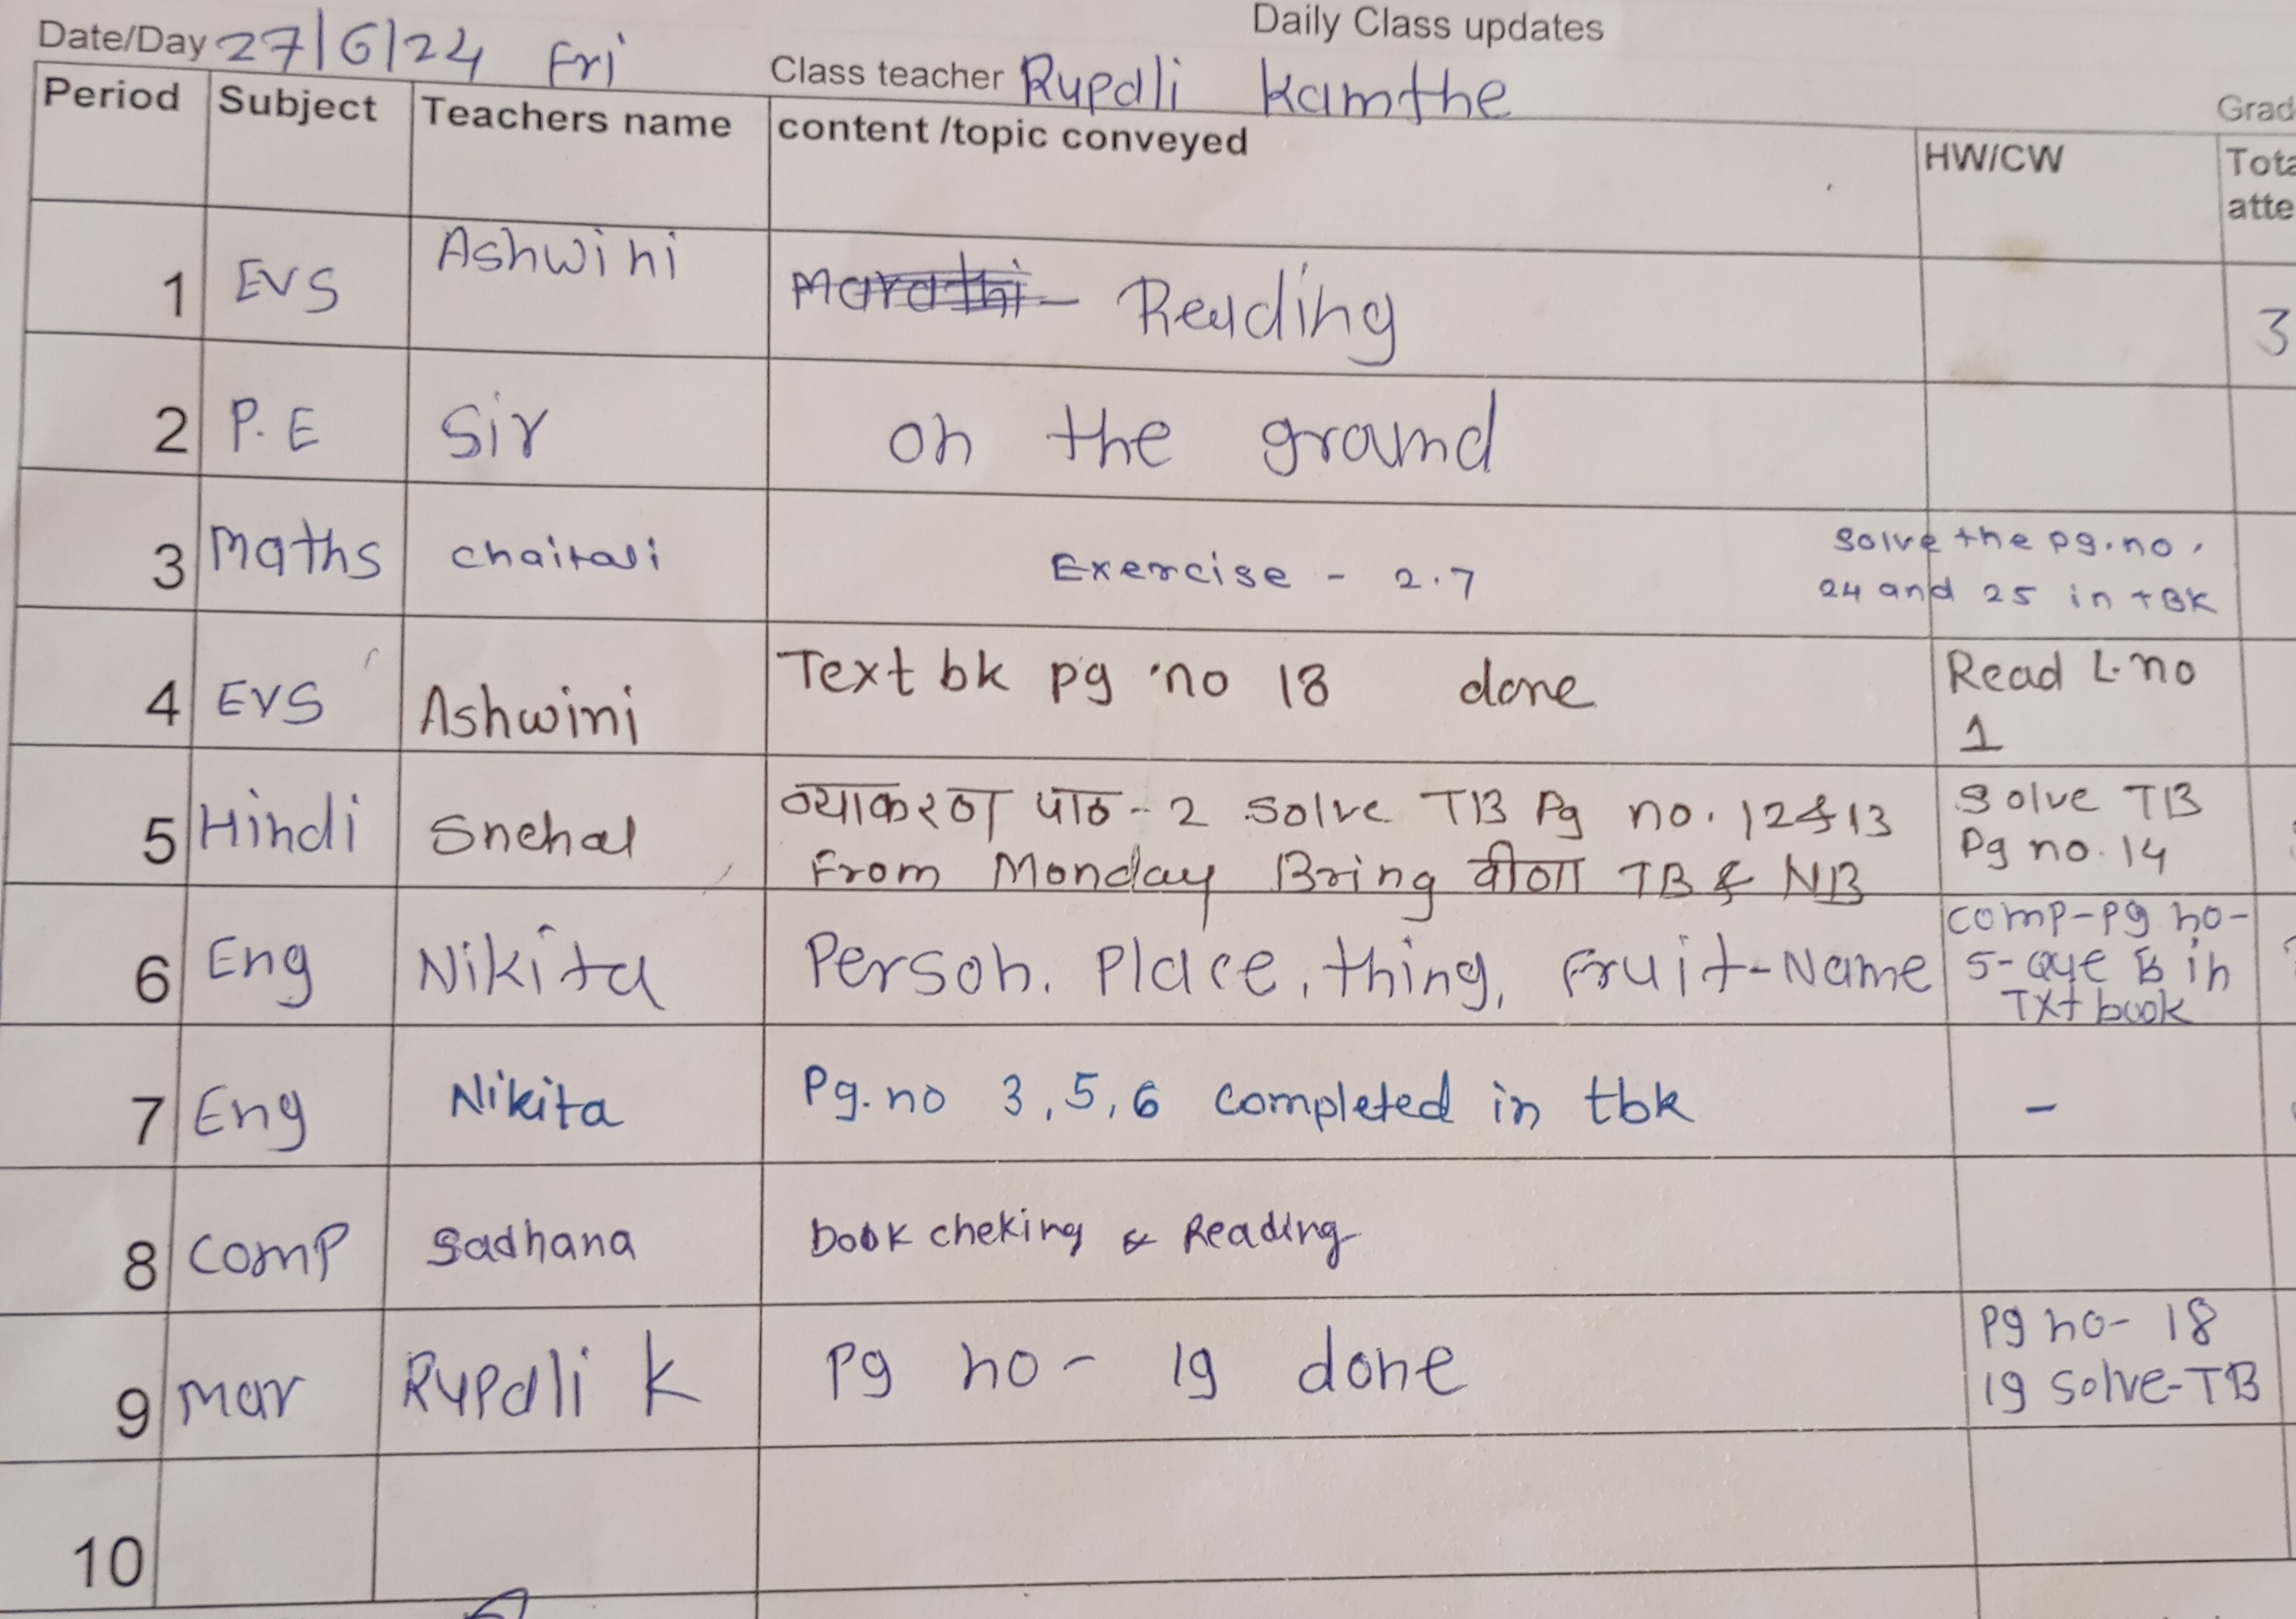 Daily Class updates
Date/Day 27/6/24 Fri Class teacher Rupali Kamthe
Period Subject Teachers name content /topic conveyed HW/CW
1 EVS Ashwini Marathi - Reading 3
2 P.E Sir on the ground
3 Maths chaitali Exercise - 2.7 Solve the pg.no.
24 and 25 in tBK
4 EVS Ashwini Text bk pg no 18 done Read L.no
1
5 Hindi Snehal व्याकरण पाठ - 2 solve TB Pg no. 12 & 13 Solve TB
From Monday Bring वीणा TB & NB Pg no. 14
6 Eng Nikita Person. Place, thing, Fruit-Name comp-pg no-
5- in
Txt book
7 Eng Nikita Pg. no 3, 5, 6 completed in tbk -
8 comp Sadhana book cheking & Reading
9 mar Rupali K Pg no - 19 done Pg no - 18
19 solve-TB
10